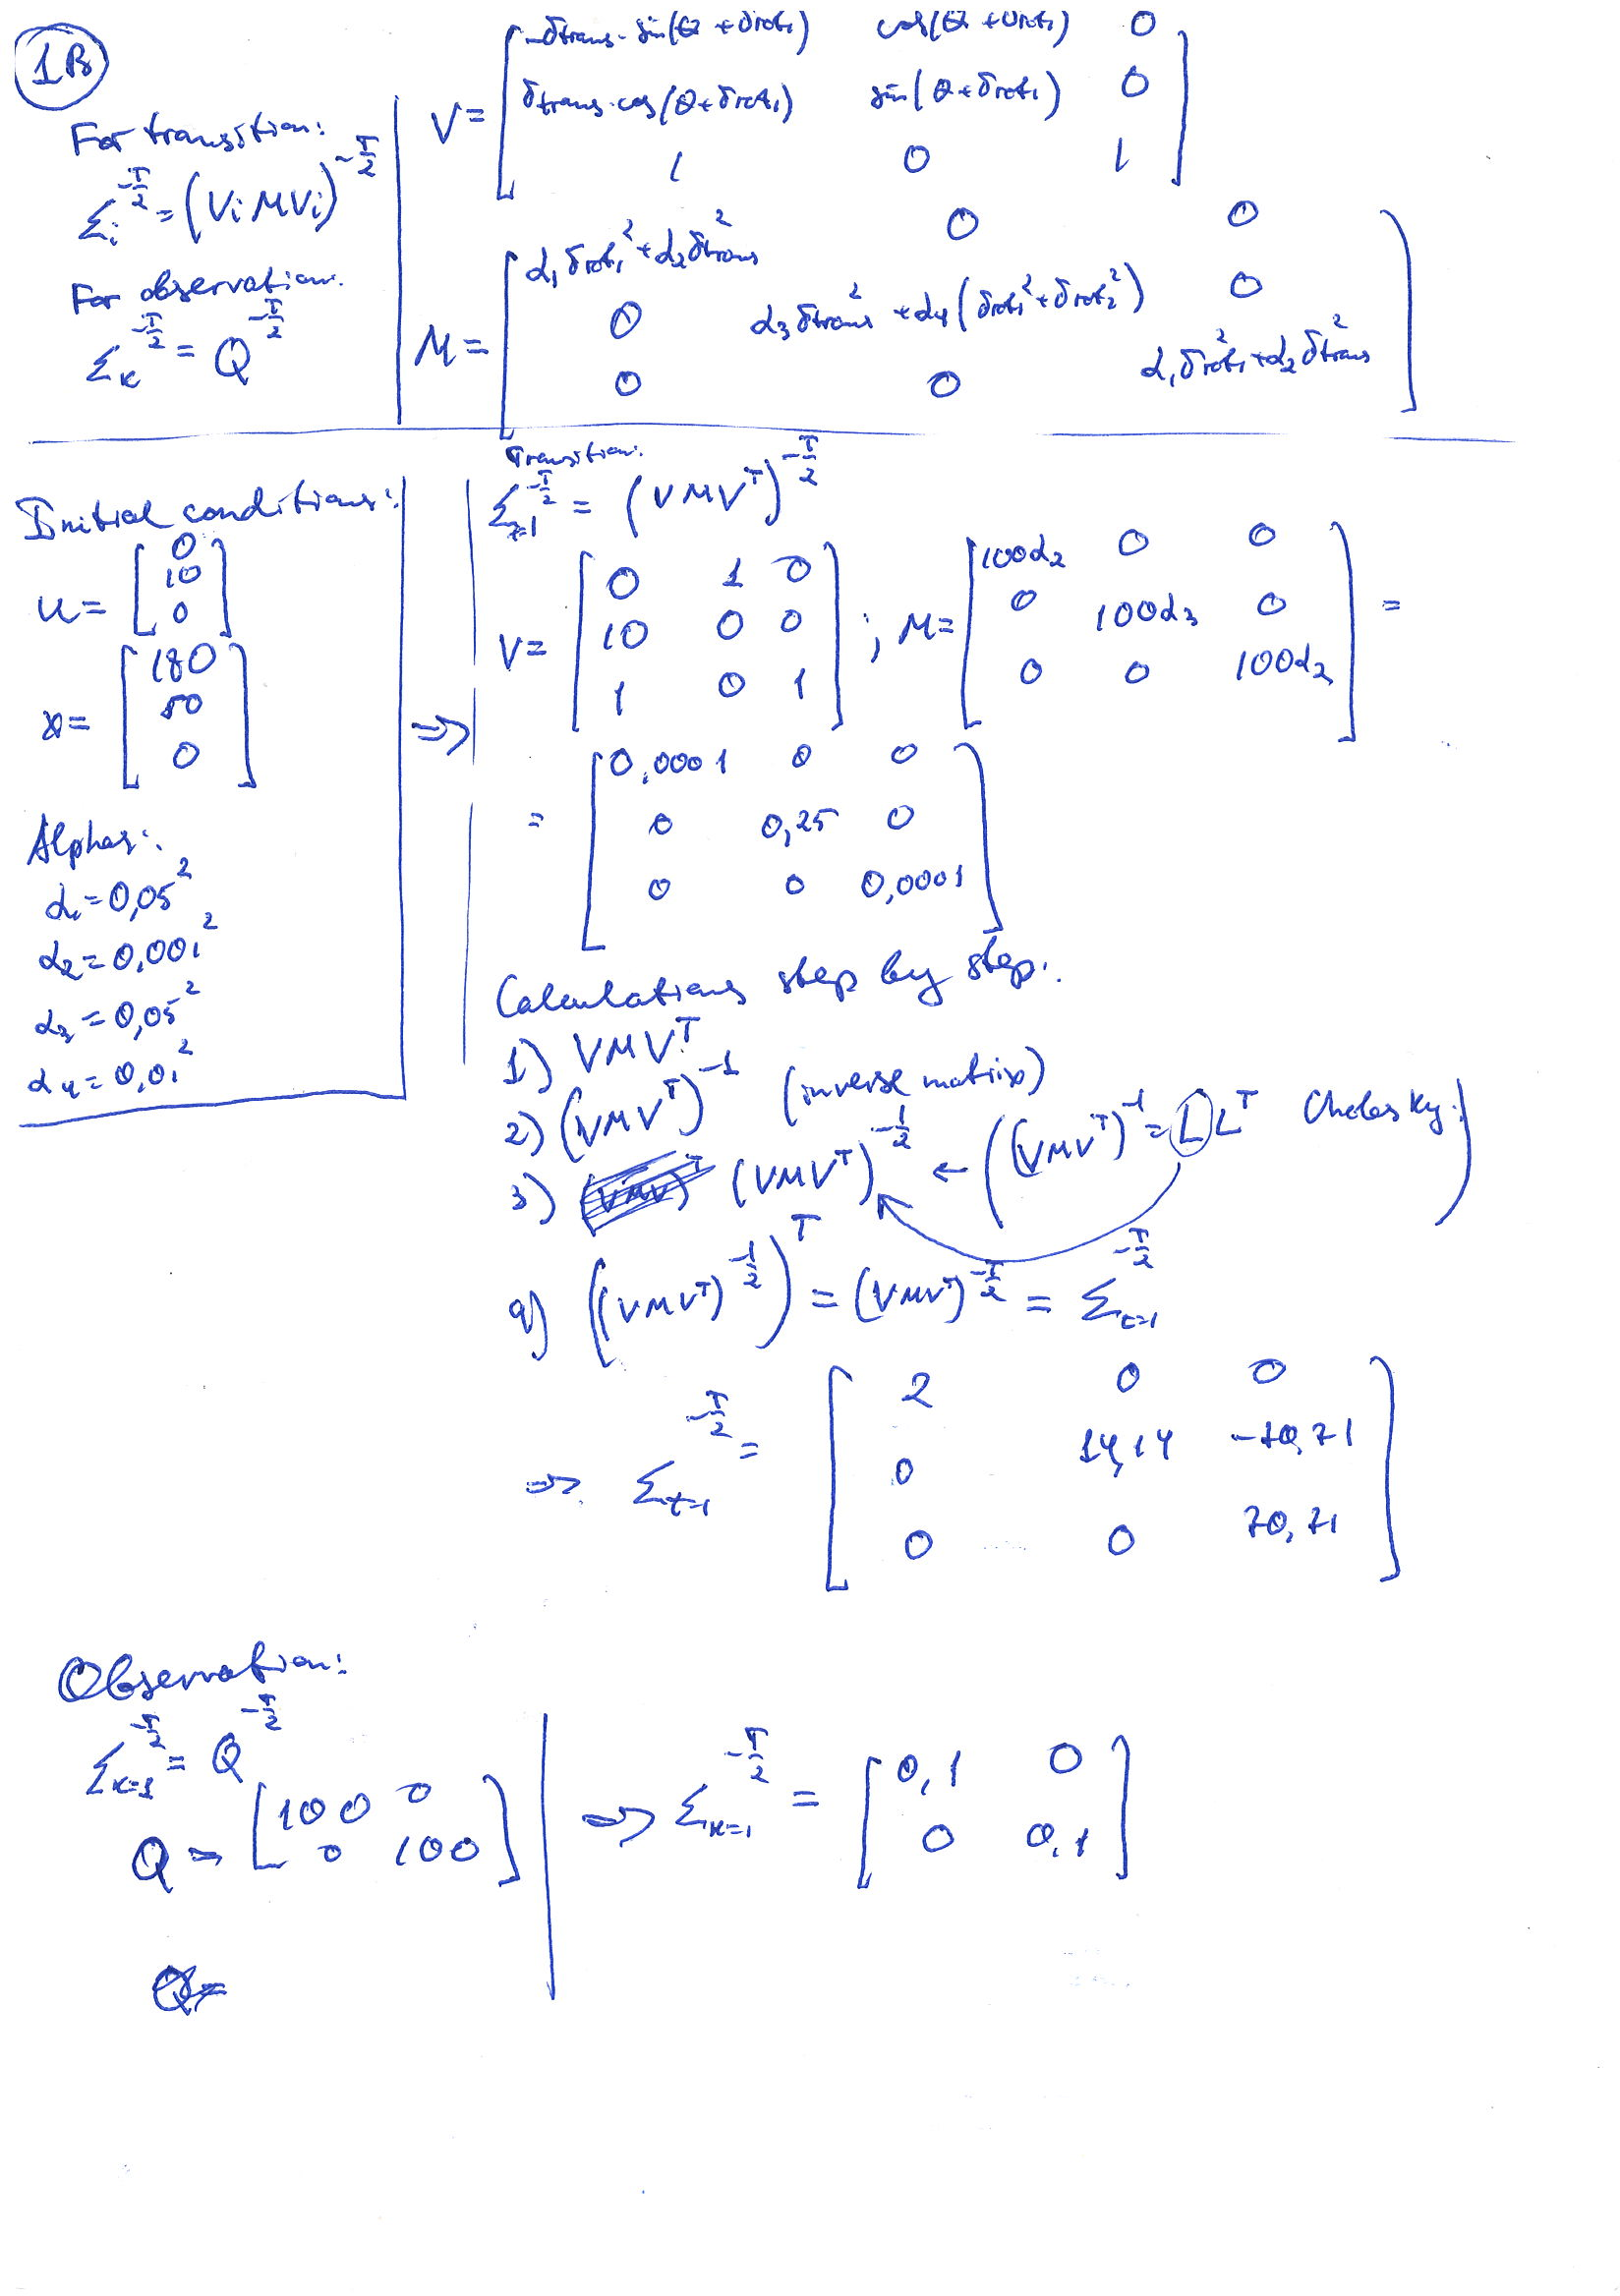 1B
For transition:
Σᵢ^(-T/2) = (Vi M Vi)^(-T/2)
For observation:
Σκ^(-T/2) = Q^(-T/2)
V = [ -δtrans · sin(θ + δrot₁) cos(θ + δrot₁) 0
δtrans · cos(θ + δrot₁) sin(θ + δrot₁) 0
1 0 1 ]
M = [ α₁δrot₁² + α₂δtrans² 0 0
0 α₃δtrans² + α₄(δrot₁² + δrot₂²) 0
0 0 α₁δrot₁² + α₂δtrans² ]
Initial conditions:
u = [ 0
10
0 ]
x = [ 180
50
0 ]
Alphas:
α₁ = 0,05²
α₂ = 0,001²
α₃ = 0,05²
α₄ = 0,01²
⇒
Transition:
Σt=1^(-T/2) = (VMV^T)^(-T/2)
V = [ 0 1 0
10 0 0
1 0 1 ] ; M = [ 100α₂ 0 0
0 100α₃ 0
0 0 100α₂ ] =
= [ 0,0001 0 0
0 0,25 0
0 0 0,0001 ]
Calculations step by step:
1) VMV^T
2) (VMV^T)^-1 (inverse matrix)
3) (VMV^T)^(-1/2) ← ((VMV^T)^-1 = LL^T Cholesky)
4) ((VMV^T)^(-1/2))^T = (VMV^T)^(-T/2) = Σt=1^(-T/2)
⇒ Σt=1^(-T/2) = [ 2 0 0
0 14,14 -70,71
0 0 70,71 ]
Observation:
Σκ=1^(-T/2) = Q^(-T/2)
Q = [ 100 0
0 100 ]
⇒ Σκ=1^(-T/2) = [ 0,1 0
0 0,1 ]
Q=